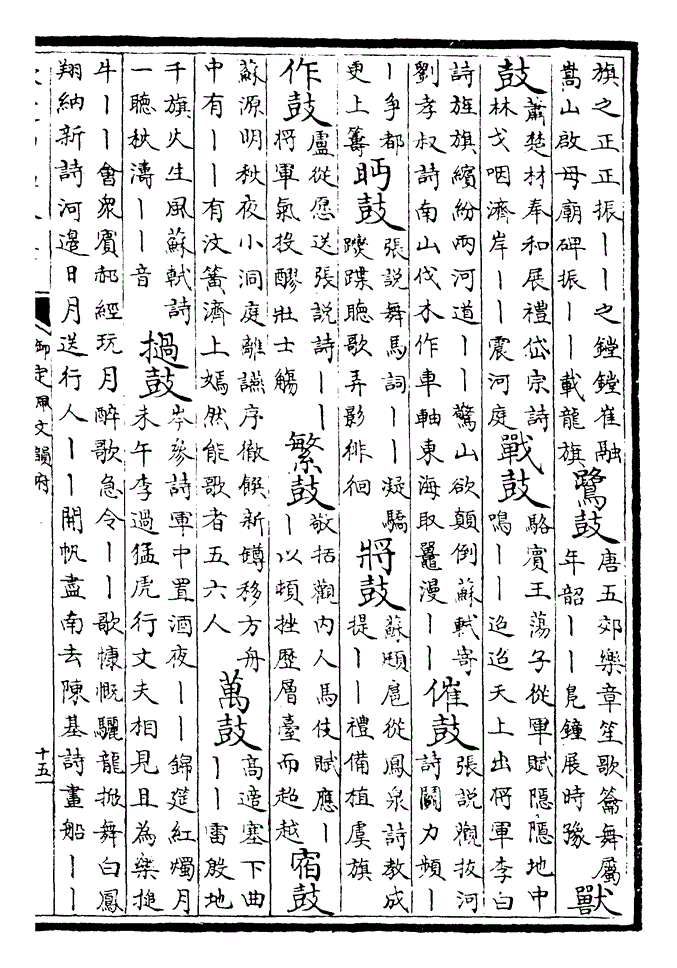 旗之正正振丨丨之鏜鏜崔融
嵩山啟母廟碑振丨丨載龍旗
鷺鼓
唐五郊樂章笙歌籥舞屬
年韶丨丨鳧鐘展時豫
獸
鼓
蕭楚材奉和展禮岱宗詩
林戈咽濟岸丨丨震河庭
戰鼓
駱賓王蕩子從軍賦隠隠地中
鳴丨丨迢迢天上出將軍李白
詩旌旗繽紛兩河道丨丨驚山欲顛倒蘇軾寄
劉孝叔詩南山伐木作車軸東海取鼉漫丨丨
催鼓
張說觀拔河
詩鬭力頻丨
丨爭都
更上籌
眄鼓
張說舞馬詞丨丨凝驕
躞蹀聽歌弄影徘徊
將鼓
蘇頲扈從鳳泉詩教成
提丨丨禮備植虞旗
作鼓
盧從愿送張說詩丨丨
將軍氣投醪壯士觴
繁鼓
敬括觀內人馬伎賦應丨
丨以頓挫歷層臺而超越
宿鼓
蘇源明秋夜小洞庭離讌序徹饌新罇移方舟
中有丨丨有汶簧濟上嫣然能歌者五六人
萬鼓
高適塞下曲
丨丨雷殷地
千旗火生風蘇軾詩
一聽秋濤丨丨音
撾鼓
岑參詩軍中置酒夜丨丨錦筵紅燭月
未午李過猛虎行丈夫相見且為樂搥
牛丨丨會衆賓郝經玩月醉歌急令丨丨歌慷慨驪龍掀舞白鳳
翔納新詩河邊日月送行人丨丨開帆盡南去陳基詩畫船丨丨
御定佩文韻府
十五